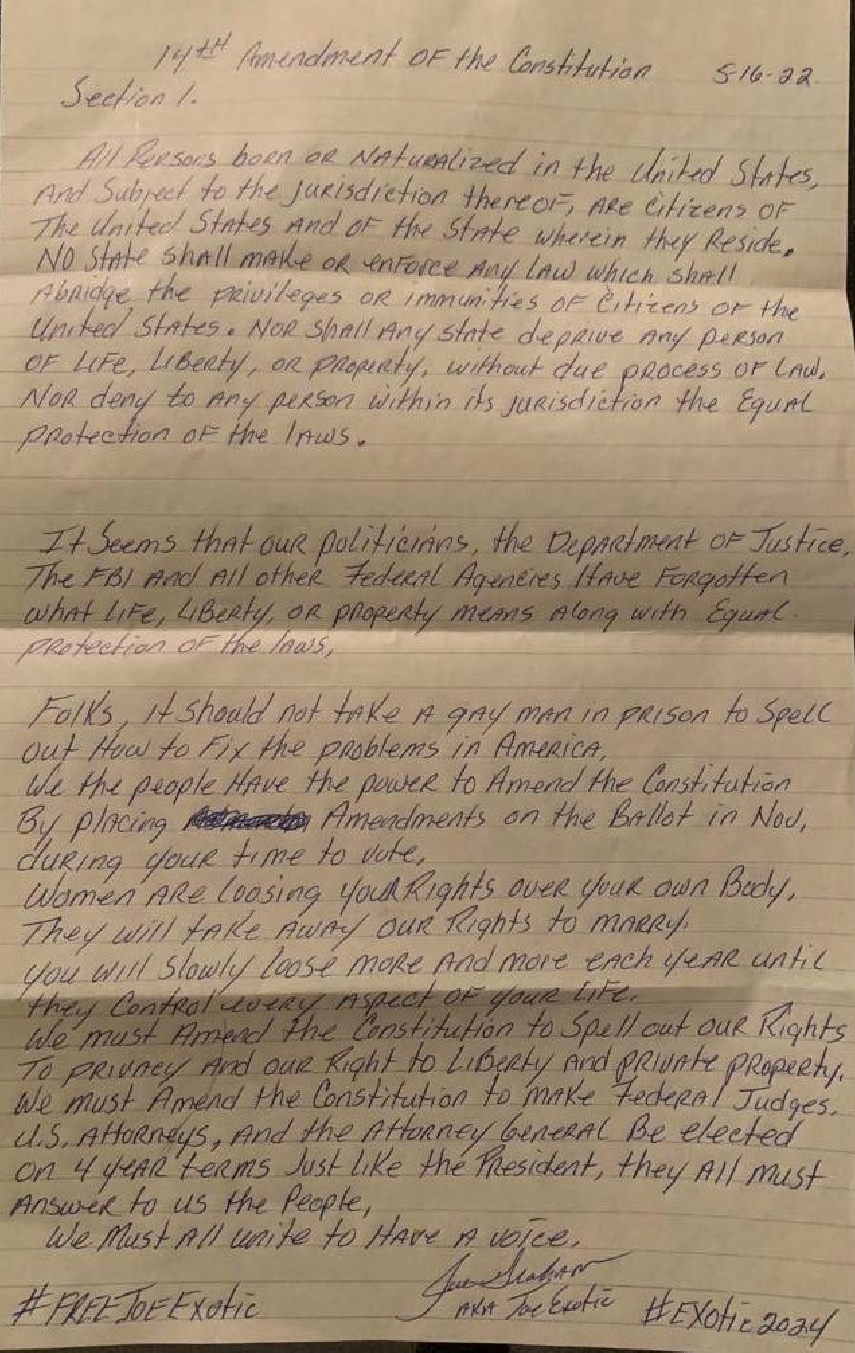 14th Amendment of the Constitution 5-16-22
Section 1.
All Persons born or Naturalized in the United States,
And Subject to the jurisdiction thereof, are Citizens of
The United States and of the State wherein they Reside.
No State shall make or enforce any law which shall
Abridge the privileges or immunities of Citizens of the
United States. Nor shall any state deprive any person
of Life, Liberty, or property, without due process of Law.
Nor deny to any person within its jurisdiction the Equal
protection of the laws.
It Seems that our politicians, the Department of Justice,
The FBI and all other Federal Agencies Have Forgotten
what Life, Liberty, or property means along with Equal
protection of the laws,
Folks, it should not take a gay man in prison to Spell
out How to Fix the problems in America,
We the people Have the power to Amend the Constitution
By placing Amendments on the Ballot in Nov,
during your time to vote,
Women are loosing your Rights over your own Body,
They will take away our Rights to marry.
You will slowly loose more and more each year until
they Control every aspect of your Life.
We must Amend the Constitution to Spell out our Rights
To privacy and our Right to Liberty and private property.
We must Amend the Constitution to make Federal Judges,
U.S. Attorneys, and the Attorney General Be elected
on 4 year terms Just like the President, they all must
Answer to us the People,
We Must All unite to Have a voice,
#FREEJOEExotic
AKA Joe Exotic #Exotic2024